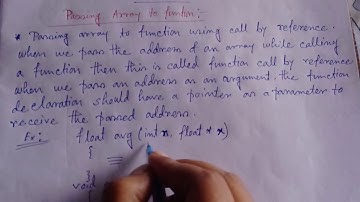 Passing Array to function:-
* Passing array to function using call by reference.
when we pass the address of an array while calling
a function then this is called function call by reference
when we pass an address as an argument, the function
declaration should have a pointer as a parameter to
receive the passed address.
Ex:- float avg (int n, float * x)
{
}
void
{